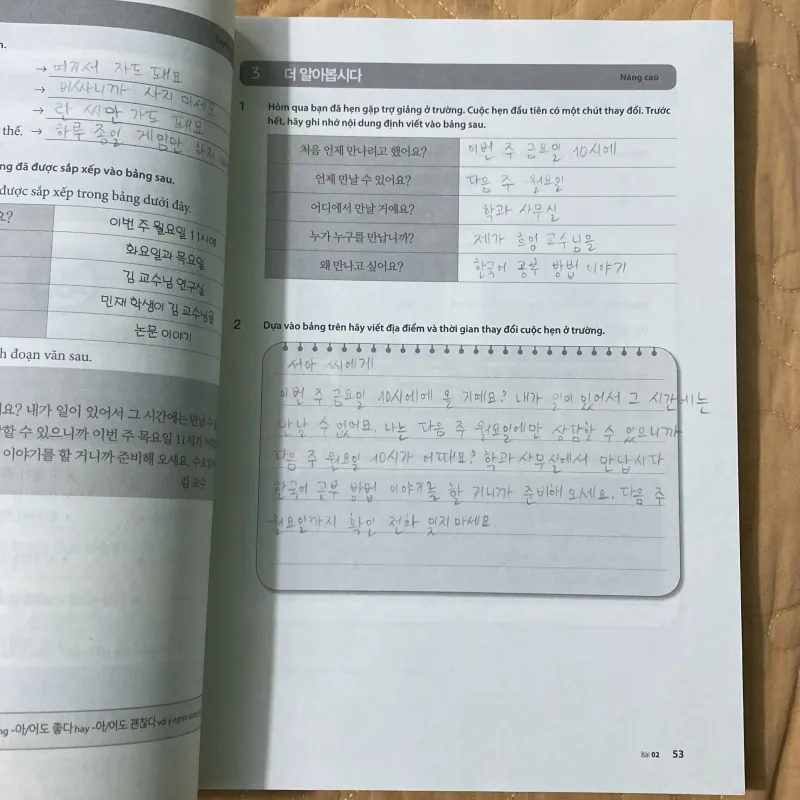 → 떠기서 자도 돼요
→ 비싸니까 사지 마세요
→ 란 씨만 가도 돼요
thế. → 하루 종일 게임만 하지
ng đã được sắp xếp vào bảng sau.
được sắp xếp trong bảng dưới đây.
이번 주 월요일 11시에
화요일과 목요일
김 교수님 연구실
민재 학생이 김 교수님을
논문 이야기
h đoạn văn sau.
요? 내가 일이 있어서 그 시간에는 만날 수
할 수 있으니까 이번 주 목요일 11시가
이야기를 할 거니까 준비해 오세요. 수요일
김 교수
ng -아/어도 좋다 hay -아/어도 괜찮다 với ý nghĩa tương
3 더 알아봅시다 Nâng cao
1 Hôm qua bạn đã hẹn gặp trợ giảng ở trường. Cuộc hẹn đầu tiên có một chút thay đổi. Trước
hết, hãy ghi nhớ nội dung định viết vào bảng sau.
처음 언제 만나려고 했어요? 이번 주 금요일 10시에
언제 만날 수 있어요? 다음 주 월요일
어디에서 만날 거예요? 학과 사무실
누가 누구를 만납니까? 제가 흐엉 교수님을
왜 만나고 싶어요? 한국어 공부 방법 이야기
2 Dựa vào bảng trên hãy viết địa điểm và thời gian thay đổi cuộc hẹn ở trường.
서아 씨에게
이번 주 금요일 10시에에 올 거예요? 내가 일이 있어서 그 시간에는
만날 수 없어요. 나는 다음 주 월요일에만 상담할 수 있으니까
다음 주 월요일 10시가 어때요? 학과 사무실에서 만납시다
한국어 공부 방법 이야기를 할 거니까 준비해 오세요. 다음 주
월요일까지 확인 전화 잊지 마세요.
Bài 02 53